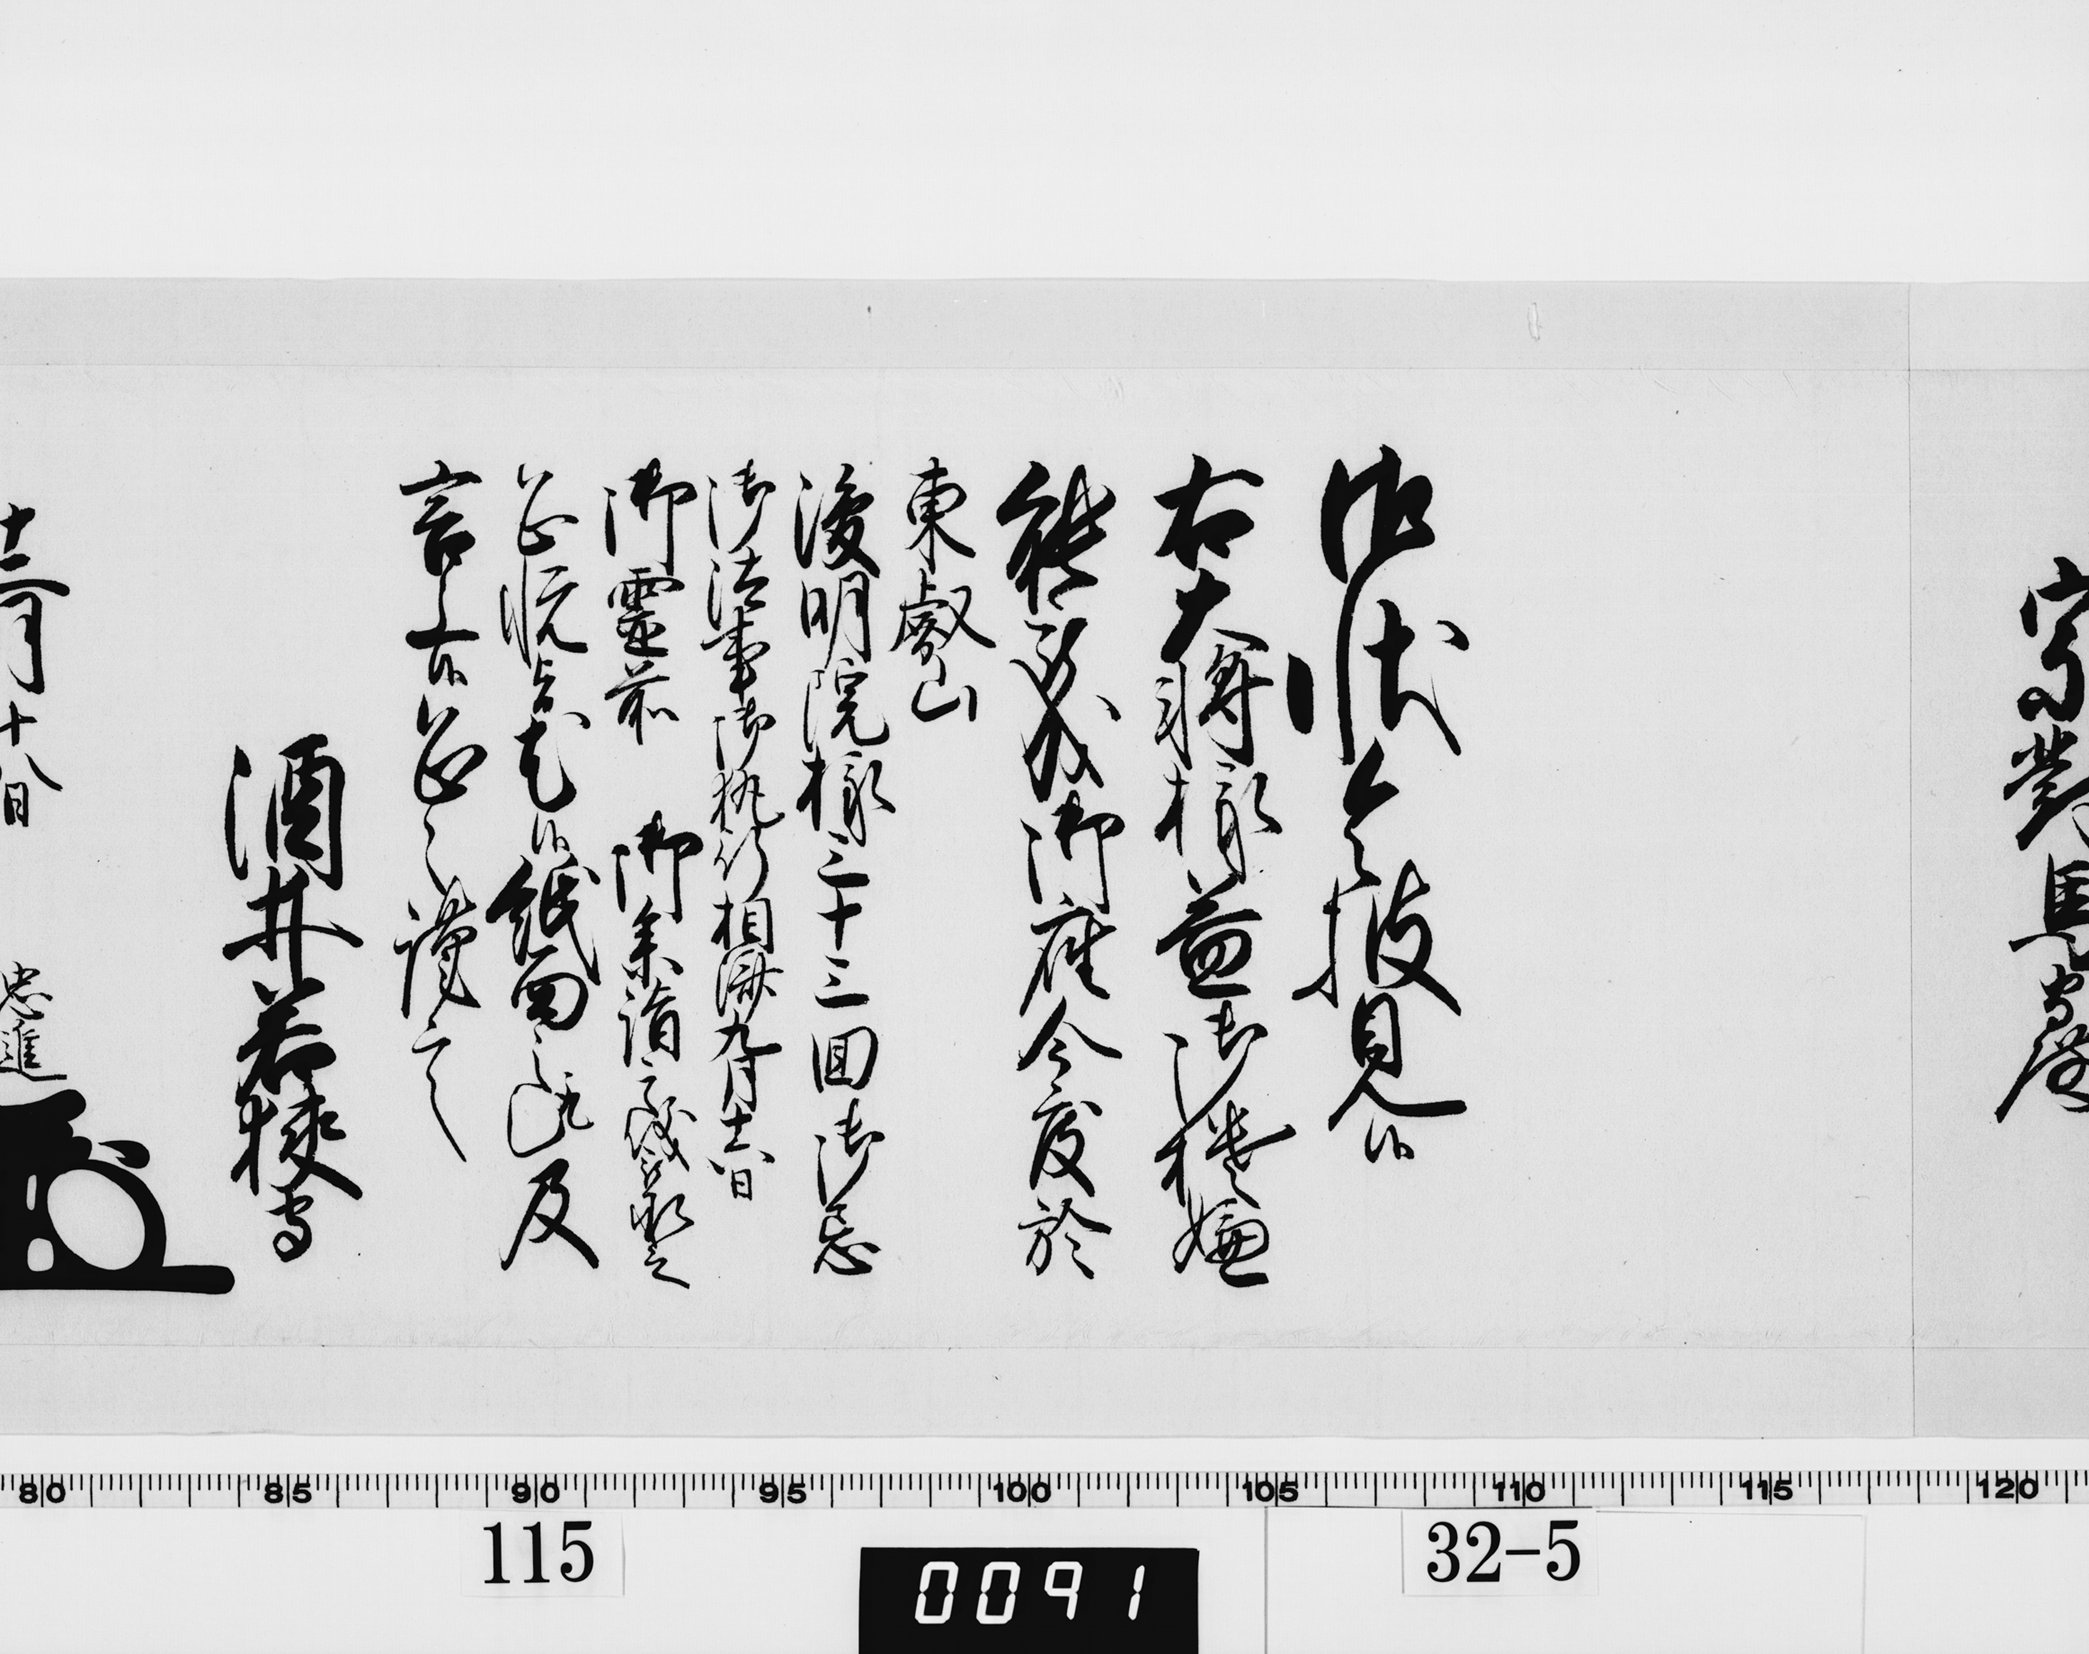 宗對馬守殿
御状令披見候
右大将様益御機嫌
能被成御座今度於
東叡山
浚明院様三十三回御忌
御法事御執行相濟九月十六日
御靈前 御参詣之儀被承之
恐悦旨尤候紙面之趣及
言上候恐々謹言
酒井若狭守
十二月十八日 忠進
80 85 90 95 100 105 110 115 120
115
0091
32-5